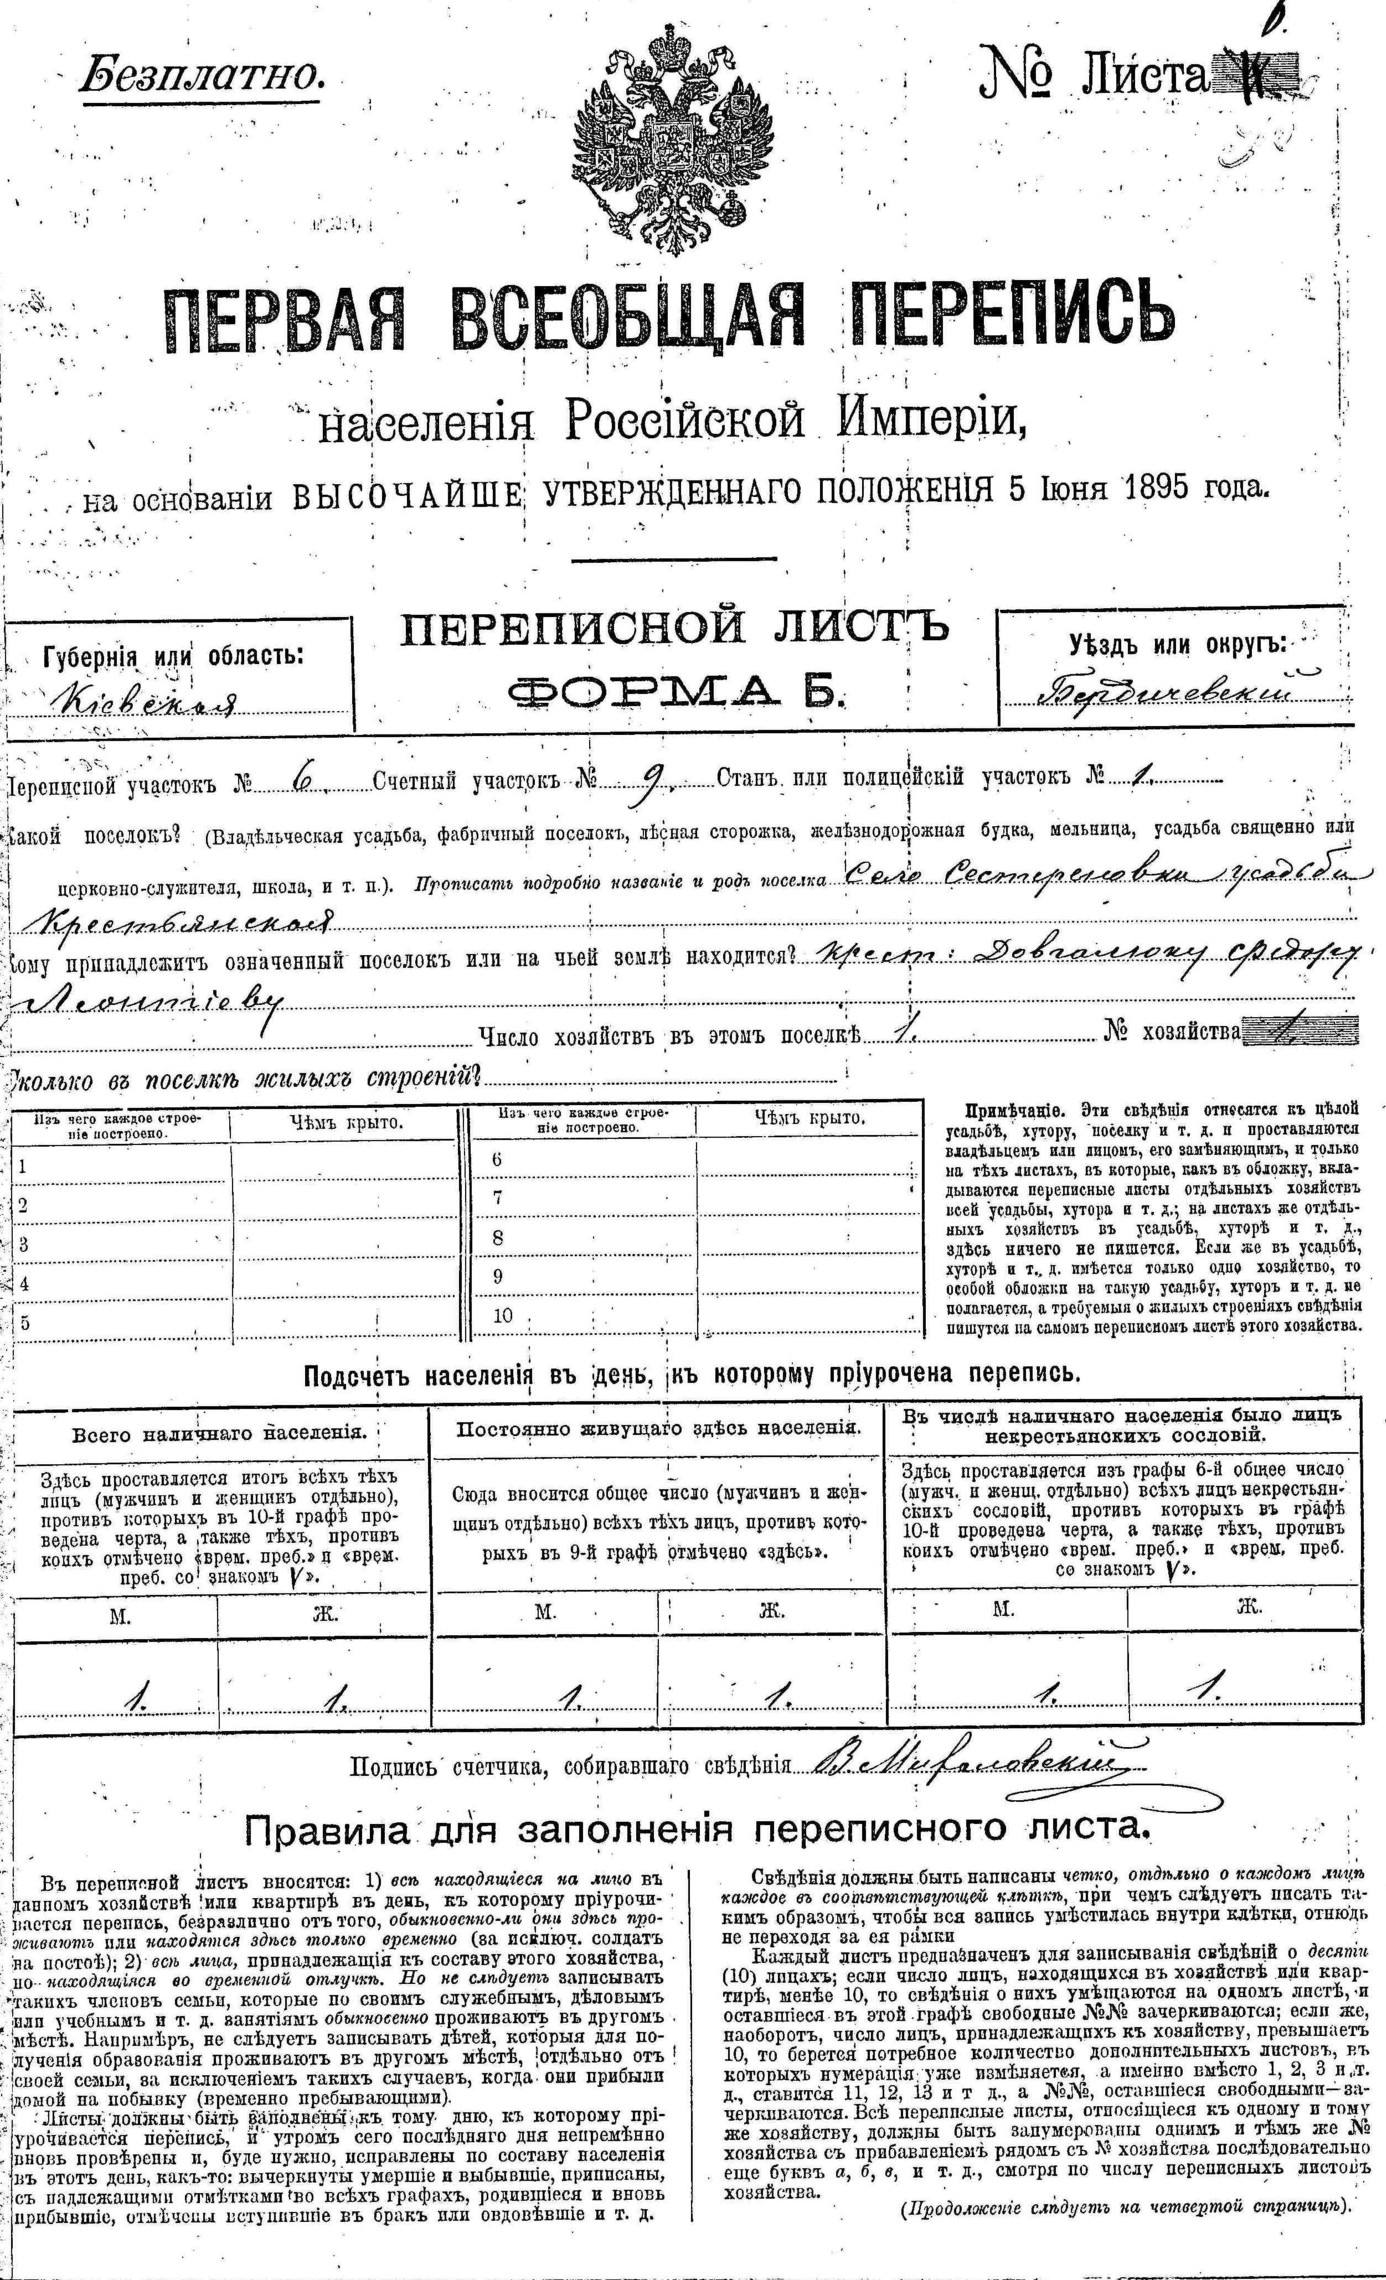 Безплатно.
№ Листа
ПЕРВАЯ ВСЕОБЩАЯ ПЕРЕПИСЬ
населенія Россійской Имперіи,
на основаніи ВЫСОЧАЙШЕ УТВЕРЖДЕННАГО ПОЛОЖЕНІЯ 5 Іюня 1895 года.
ПЕРЕПИСНОЙ ЛИСТЪ
ФОРМА Б.
Губернія или область:
Кіевская
Уѣздъ или округъ:
Бердичевскій
Переписной участокъ № 6. Счетный участокъ № 9. Станъ или полицейскій участокъ № 1.
Какой поселокъ? (Владѣльческая усадьба, фабричный поселокъ, лѣсная сторожка, желѣзнодорожная будка, мельница, усадьба священно или
церковно-служителя, школа, и т. п.). Прописать подробно названіе и родъ поселка Село Сестреновка усадьба
Крестьянская
Кому принадлежитъ означенный поселокъ или на чьей землѣ находится? крест: Довгалюку Федору
Леонтіеву
Число хозяйствъ въ этомъ поселкѣ 1. № хозяйства 1.
Сколько въ поселкѣ жилыхъ строеній?
Изъ чего каждое строе-
ніе построено.
Чѣмъ крыто.
Изъ чего каждое строе-
ніе построено.
Чѣмъ крыто.
1
2
3
4
5
6
7
8
9
10
Примѣчаніе. Эти свѣдѣнія относятся къ цѣлой
усадьбѣ, хутору, поселку и т. д. и проставляются
владѣльцемъ или лицомъ, его замѣняющимъ, и только
на тѣхъ листахъ, въ которые, какъ въ обложку, вкла-
дываются переписные листы отдѣльныхъ хозяйствъ
всей усадьбы, хутора и т. д.; на листахъ же отдѣль-
ныхъ хозяйствъ въ усадьбѣ, хуторѣ и т. д.,
здѣсь ничего не пишется. Если же въ усадьбѣ,
хуторѣ и т. д. имѣется только одно хозяйство, то
особой обложки на такую усадьбу, хуторъ и т. д. не
полагается, а требуемыя о жилыхъ строеніяхъ свѣдѣнія
пишутся на самомъ переписномъ листѣ этого хозяйства.
Подсчетъ населенія въ день, къ которому пріурочена перепись.
Всего наличнаго населенія.
Здѣсь проставляется итогъ всѣхъ тѣхъ
лицъ (мужчинъ и женщинъ отдѣльно),
противъ которыхъ въ 10-й графѣ про-
ведена черта, а также тѣхъ, противъ
коихъ отмѣчено «врем. преб.» и «врем.
преб. со знакомъ V».
М. Ж.
1. 1.
Постоянно живущаго здѣсь населенія.
Сюда вносится общее число (мужчинъ и жен-
щинъ отдѣльно) всѣхъ тѣхъ лицъ, противъ кото-
рыхъ въ 9-й графѣ отмѣчено «здѣсь».
М. Ж.
1. 1.
Въ числѣ наличнаго населенія было лицъ
некрестьянскихъ сословій.
Здѣсь проставляется изъ графы 6-й общее число
(мужч. и женщ. отдѣльно) всѣхъ лицъ некрестьян-
скихъ сословій, противъ которыхъ въ графѣ
10-й проведена черта, а также тѣхъ, противъ
коихъ отмѣчено «врем. преб.» и «врем. преб.
со знакомъ V».
М. Ж.
1. 1.
Подпись счетчика, собиравшаго свѣдѣнія В.
Правила для заполненія переписного листа.
Въ переписной листъ вносятся: 1) всѣ находящіеся на лицо въ
данномъ хозяйствѣ или квартирѣ въ день, къ которому пріурочи-
вается перепись, безразлично отъ того, обыкновенно-ли они здѣсь про-
живаютъ или находятся здѣсь только временно (за исключ. солдатъ
на постоѣ); 2) всѣ лица, принадлежащія къ составу этого хозяйства,
но находящіяся во временной отлучкѣ. Но не слѣдуетъ записывать
такихъ членовъ семьи, которые по своимъ служебнымъ, дѣловымъ
или учебнымъ и т. д. занятіямъ обыкновенно проживаютъ въ другомъ
мѣстѣ. Напримѣръ, не слѣдуетъ записывать дѣтей, которыя для по-
лученія образованія проживаютъ въ другомъ мѣстѣ, отдѣльно отъ
своей семьи, за исключеніемъ такихъ случаевъ, когда они прибыли
домой на побывку (временно пребывающими).
Листы должны быть заполнены къ тому дню, къ которому прі-
урочивается перепись, и утромъ сего послѣдняго дня непремѣнно
вновь провѣрены и, буде нужно, исправлены по составу населенія
въ этотъ день, какъ-то: вычеркнуты умершіе и выбывшіе, приписаны,
съ надлежащими отмѣтками во всѣхъ графахъ, родившіеся и вновь
прибывшіе, отмѣчены вступившіе въ бракъ или овдовѣвшіе и т. д.
Свѣдѣнія должны быть написаны четко, отдѣльно о каждомъ лицѣ
каждое въ соотвѣтствующей клѣткѣ, при чемъ слѣдуетъ писать та-
кимъ образомъ, чтобы вся запись умѣстилась внутри клѣтки, отнюдь
не переходя за ея рамки
Каждый листъ предназначенъ для записыванія свѣдѣній о десяти
(10) лицахъ; если число лицъ, находящихся въ хозяйствѣ или квар-
тирѣ, менѣе 10, то свѣдѣнія о нихъ умѣщаются на одномъ листѣ, и
оставшіеся въ этой графѣ свободные №№ зачеркиваются; если же,
наоборотъ, число лицъ, принадлежащихъ къ хозяйству, превышаетъ
10, то берется потребное количество дополнительныхъ листовъ, въ
которыхъ нумерація уже измѣняется, а именно вмѣсто 1, 2, 3 и т.
д., ставится 11, 12, 13 и т д., а №№, оставшіеся свободными—за-
черкиваются. Всѣ переписные листы, относящіеся къ одному и тому
же хозяйству, должны быть занумерованы однимъ и тѣмъ же №
хозяйства съ прибавленіемъ рядомъ съ № хозяйства послѣдовательно
еще буквъ а, б, в, и т. д., смотря по числу переписныхъ листовъ
хозяйства.
(Продолженіе слѣдуетъ на четвертой страницѣ).